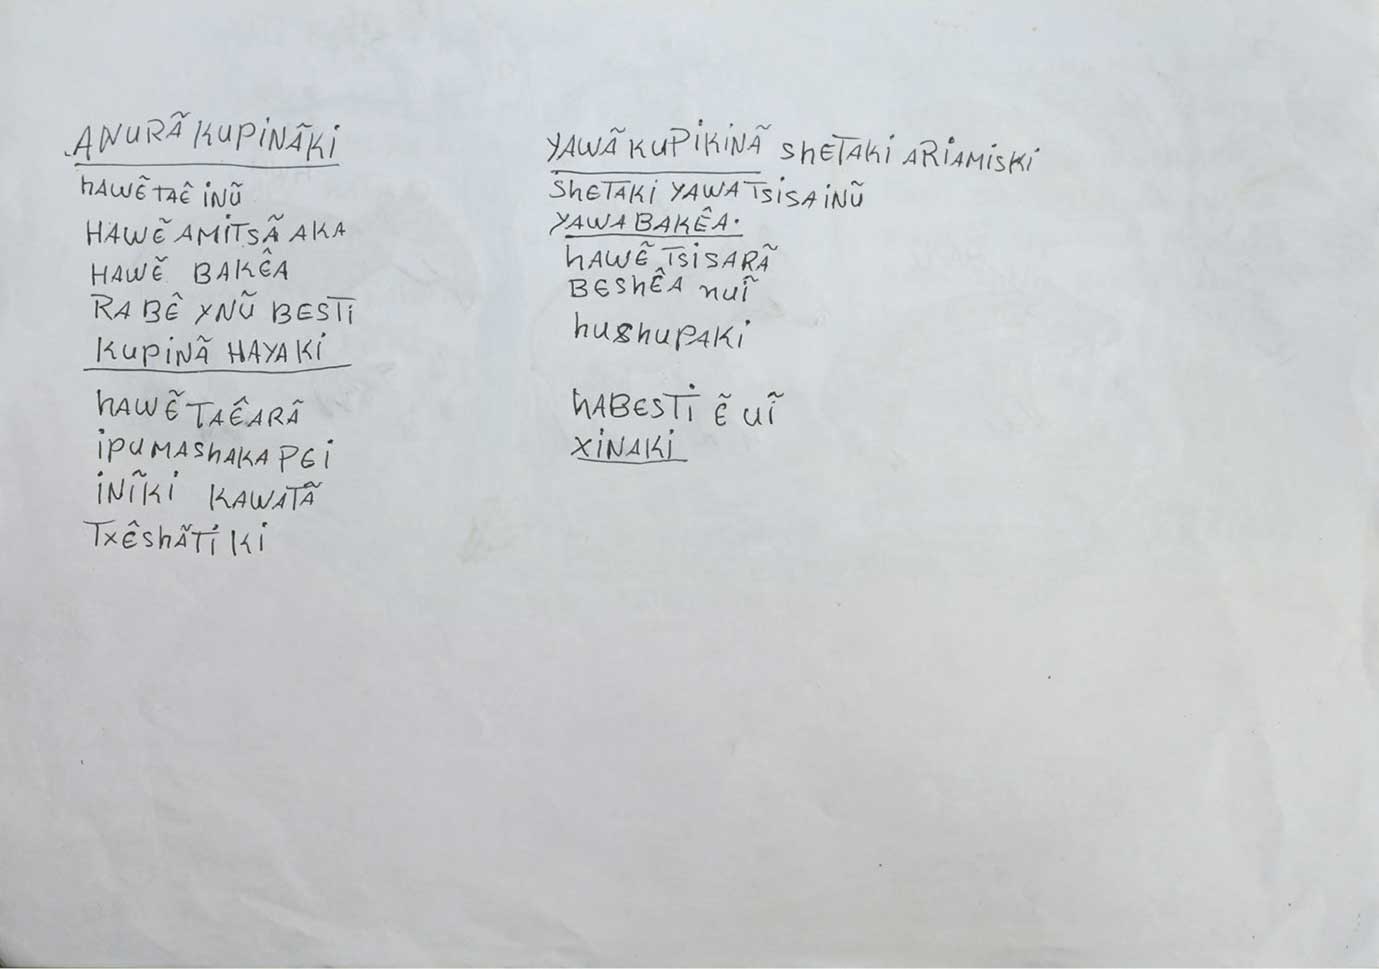 ANURÃ KUPINÃKI
hAWẼ TAÊ iNŨ
HAWẼ AMiTSÃ AKA
HAWẼ BAKÊA
RABÊ YNŨ BESTi
KUPiNÃ HAYAKi
hAWẼ TAÊARÃ
iPUMAShAKA PEi
iNĨKi KAWATÃ
TXÊShÃTi Ki
YAWÃ KUPiKiNÃ ShETAKi ARiAMiSKi
ShETAKi YAWA TSiSA iNŨ
YAWA BAKÊA.
hAWẼ TSiSARÃ
BEShÊA nuĨ
huShuPAKi
hABESTi Ẽ UĨ
XiNAKi